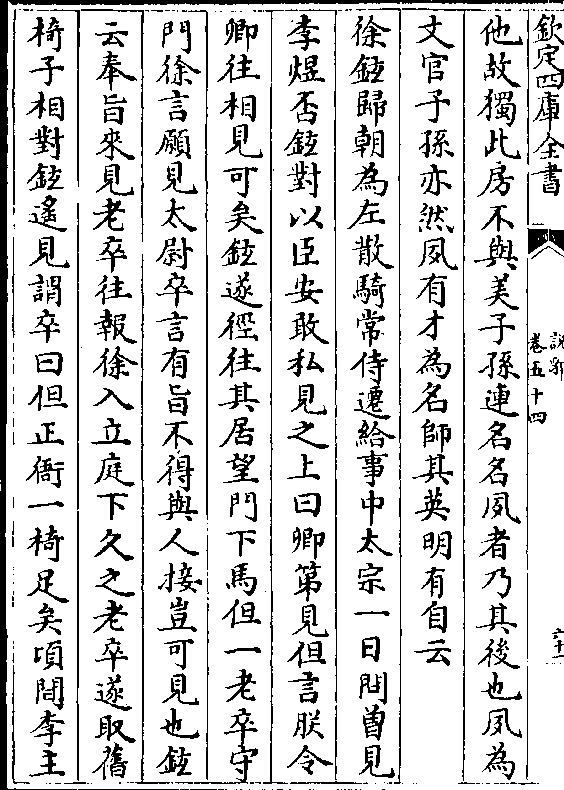 欽定四庫全書
說郛
卷五十四
六十一
他故獨此房不與美子孫連名名夙者乃其後也夙為
文官子孫亦然夙有才為名帥其英明有自云
徐鉉歸朝為左散騎常侍遷給事中太宗一日問曾見
李煜否鉉對以臣安敢私見之上曰卿第見但言朕令
卿往相見可矣鉉遂徑往其居望門下馬但一老卒守
門徐言願見太尉卒言有旨不得與人接豈可見也鉉
云奉旨來見老卒往報徐入立庭下久之老卒遂取舊
椅子相對鉉遙見謂卒曰但正衙一椅足矣頃間李主